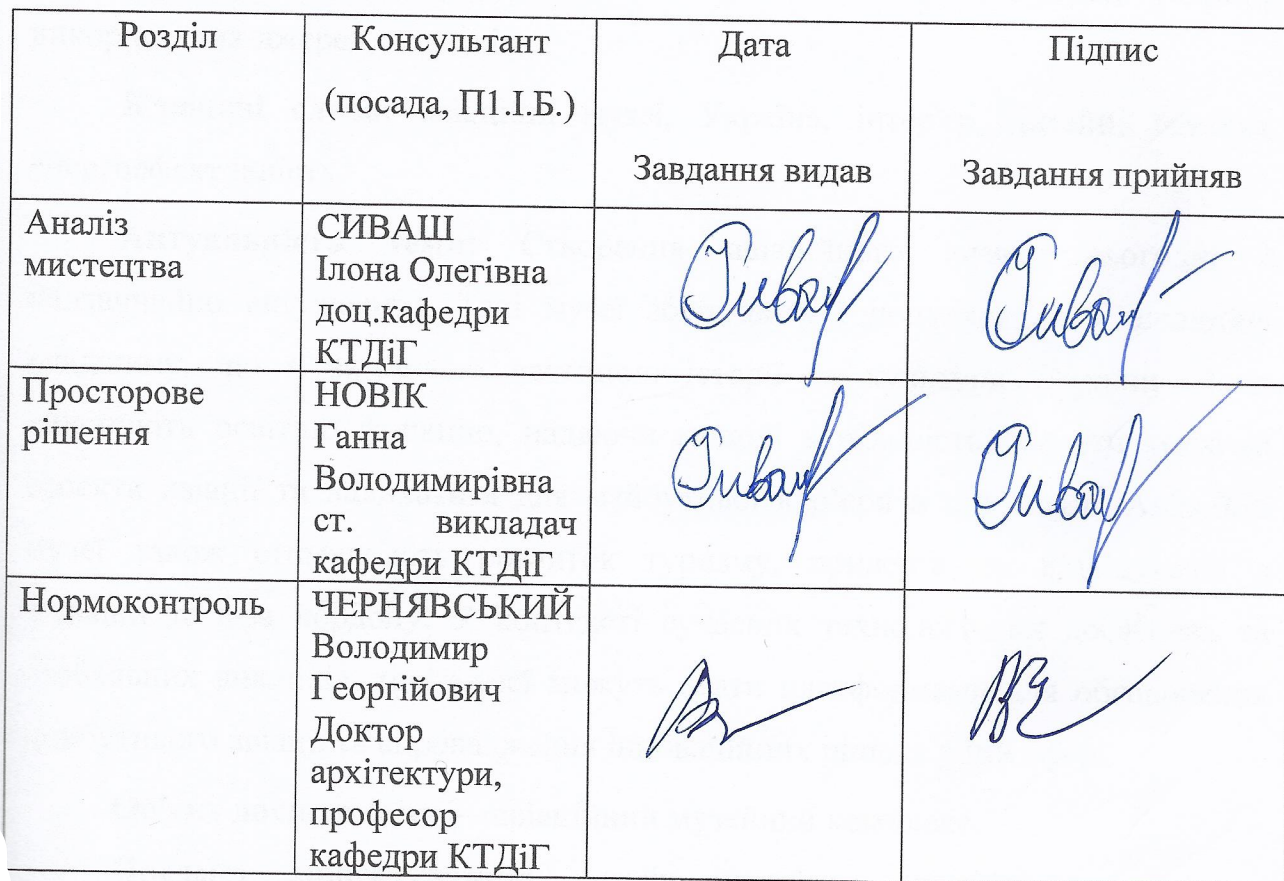 Розділ
Консультант
(посада, П1.І.Б.)
Дата
Завдання видав
Підпис
Завдання прийняв
Аналіз
мистецтва
СИВАШ
Ілона Олегівна
доц.кафедри
КТДіГ
Просторове
рішення
НОВІК
Ганна
Володимирівна
ст. викладач
кафедри КТДіГ
Нормоконтроль
ЧЕРНЯВСЬКИЙ
Володимир
Георгійович
Доктор
архітектури,
професор
кафедри КТДіГ